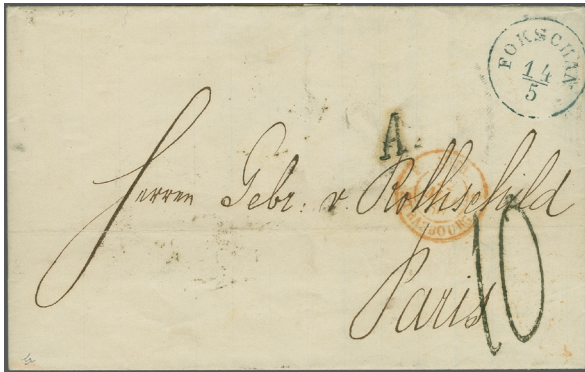 FOKSCHAN
14
5
A.
Herren Gebr: v. Rothschild
Paris
10